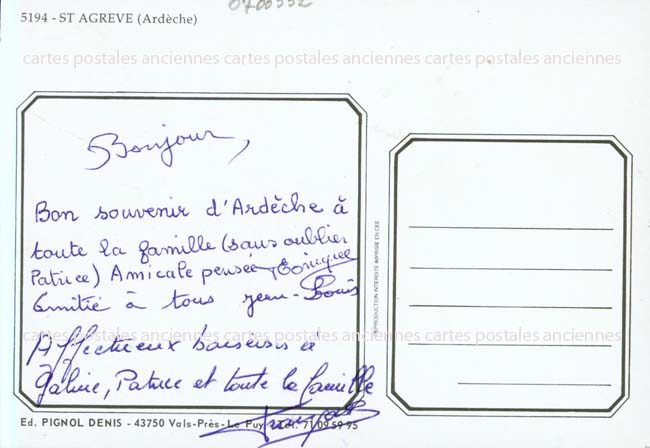 0700332
5194 - ST AGREVE (Ardèche)
cartes postales anciennes cartes postales anciennes cartes postales anciennes
Bonjour,
Bon souvenir d'Ardèche à
toute la famille (sans oublier
Patrice) Amicale pensée
Amitié à tous Jean-Louis
REPRODUCTION INTERDITE IMPRIME EN CEE
cartes postales anciennes cartes postales anciennes cartes postales anciennes
Affectueux baisers à
Patrice et toute la famille
Ed. PIGNOL DENIS - 43750 Vals-Près-Le Puy Tél. 71.09.59.95